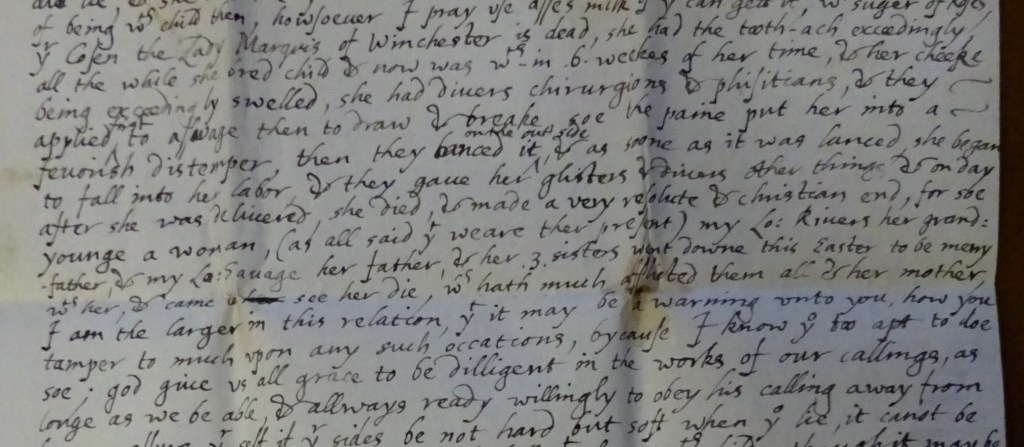 of being wth child then, howsoever I pray use asses milk if yu can gett it, wth suger of roses,
yr Cosen the Lady Marquis of Winchester is dead, she had the tooth-ach exceedingly,
all the while she bred child & now was wth-in .6. weekes of her time, & her cheeke
being exceedingly swelled, she had divers chirurgions & phisitians, & they
applied first to asswage then to draw & breake, soe the paine put her into a
feuorish distemper, then they lanced it on the out side, & as soone as it was lanced, she began
to fall into her labor, & they gave her glisters & divers other things & on day
after she was delivered, she died, & made a very resolute & christian end, for soe
younge a woman, (as all said yt weare ther present) my Lo: Rivers her grand=
-father, & my Lo: Savage her father, & her 3. sisters went downe this Easter to be merry
wth her, & came see her die, wch hath much afflicted them all & her mother
I am the larger in this relation, yt it may be a warning vnto you, how you
tamper to much vpon any such occations, bycause I know yu too apt to doe
soe; god give vs all grace to be dilligent in the works of our callings, as
longe as we be able, & allways ready willingly to obey his calling away from
yr self if yr sides be not hard but soft when yu lie, it canot be